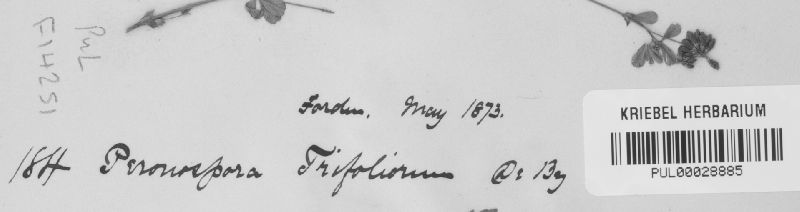 PUL
F14251
Forden. May 1873.
184 Peronospora Trifoliorum De By
KRIEBEL HERBARIUM
PUL00028885